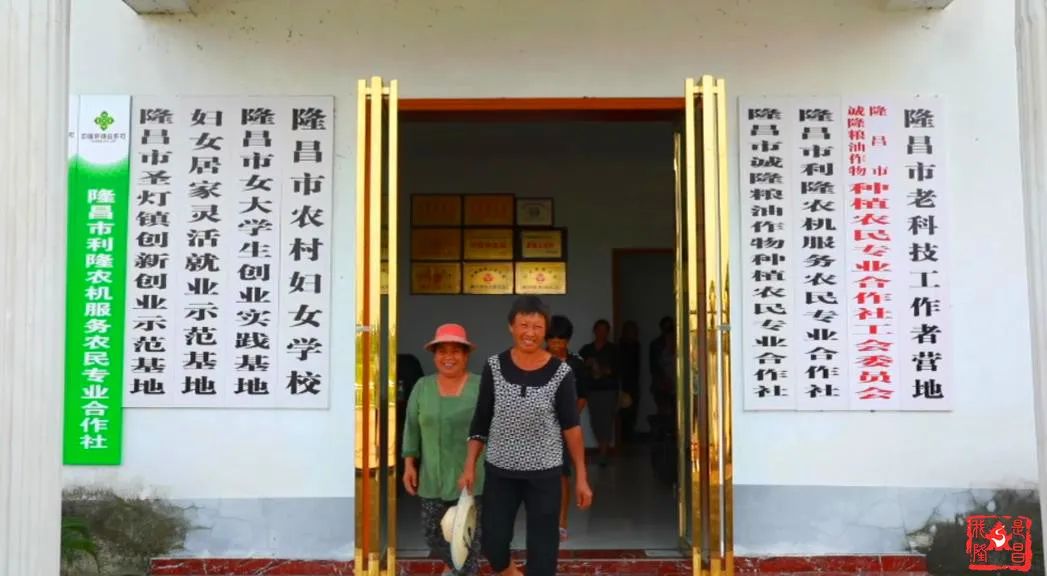 隆昌市利隆农机服务农民专业合作社
隆昌市圣灯镇创新创业示范基地
妇女居家灵活就业示范基地
隆昌市女大学生创业实践基地
隆昌市农村妇女学校
隆昌市诚隆粮油作物种植农民专业合作社
隆昌市利隆农机服务农民专业合作社
隆昌市
诚隆粮油作物
种植农民专业合作社工会委员会
隆昌市老科技工作者营地
我是隆昌